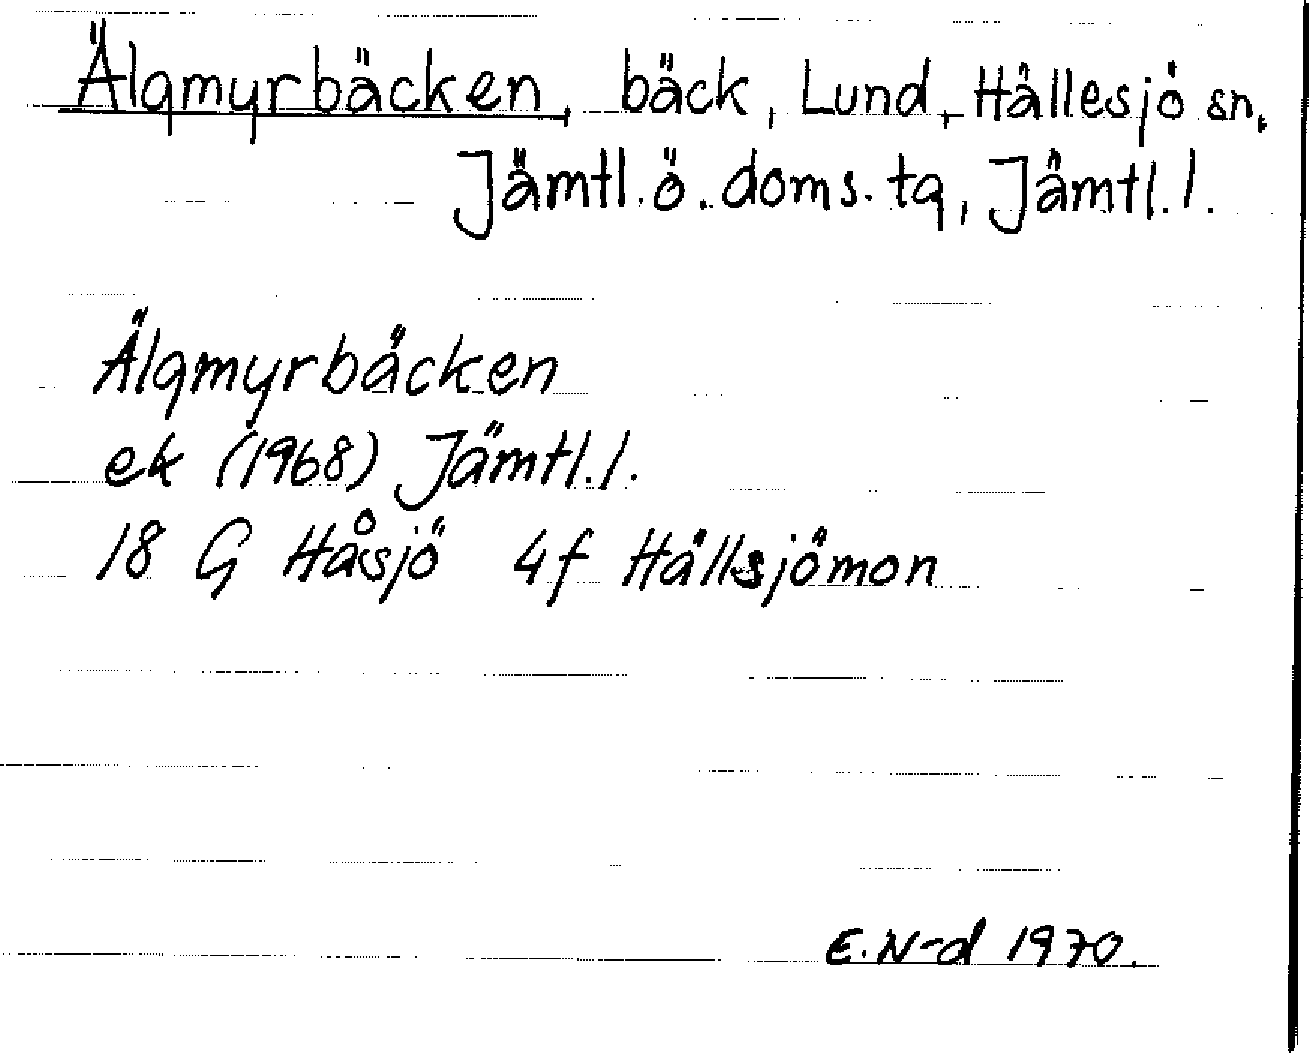 Älgmyrbäcken, bäck, Lund, Hällesjö sn,
Jämtl. ö. doms. tg, Jämtl. l.
Älgmyrbäcken
ek (1968) Jämtl. l.
18 G Håsjö 4f Hällsjömon
E. N-d 1970.